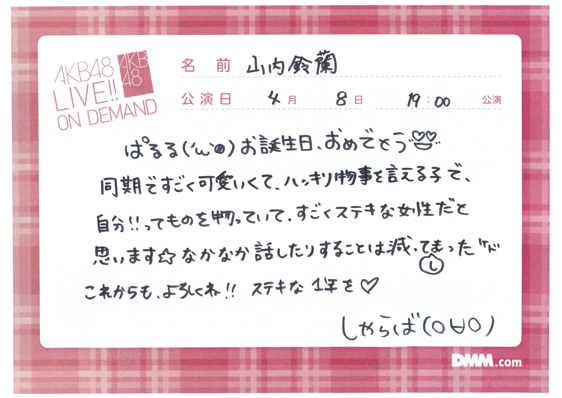 AKB48
LIVE!!
ON DEMAND
AKB
48
名 前 山内鈴蘭
公演日 4月 8日 19:00 公演
ぱるる('ω'●)お誕生日、おめでとう
同期ですごく可愛いくて、ハッキリ物事を言える子で、
自分!!ってものを物っていて、すごくステキな女性だと
思います☆なかなか話したりすることは減ってしまったケド
これからも、よろしくね!! ステキな1年を♡
しゃらば(O∀O)
DMM.com